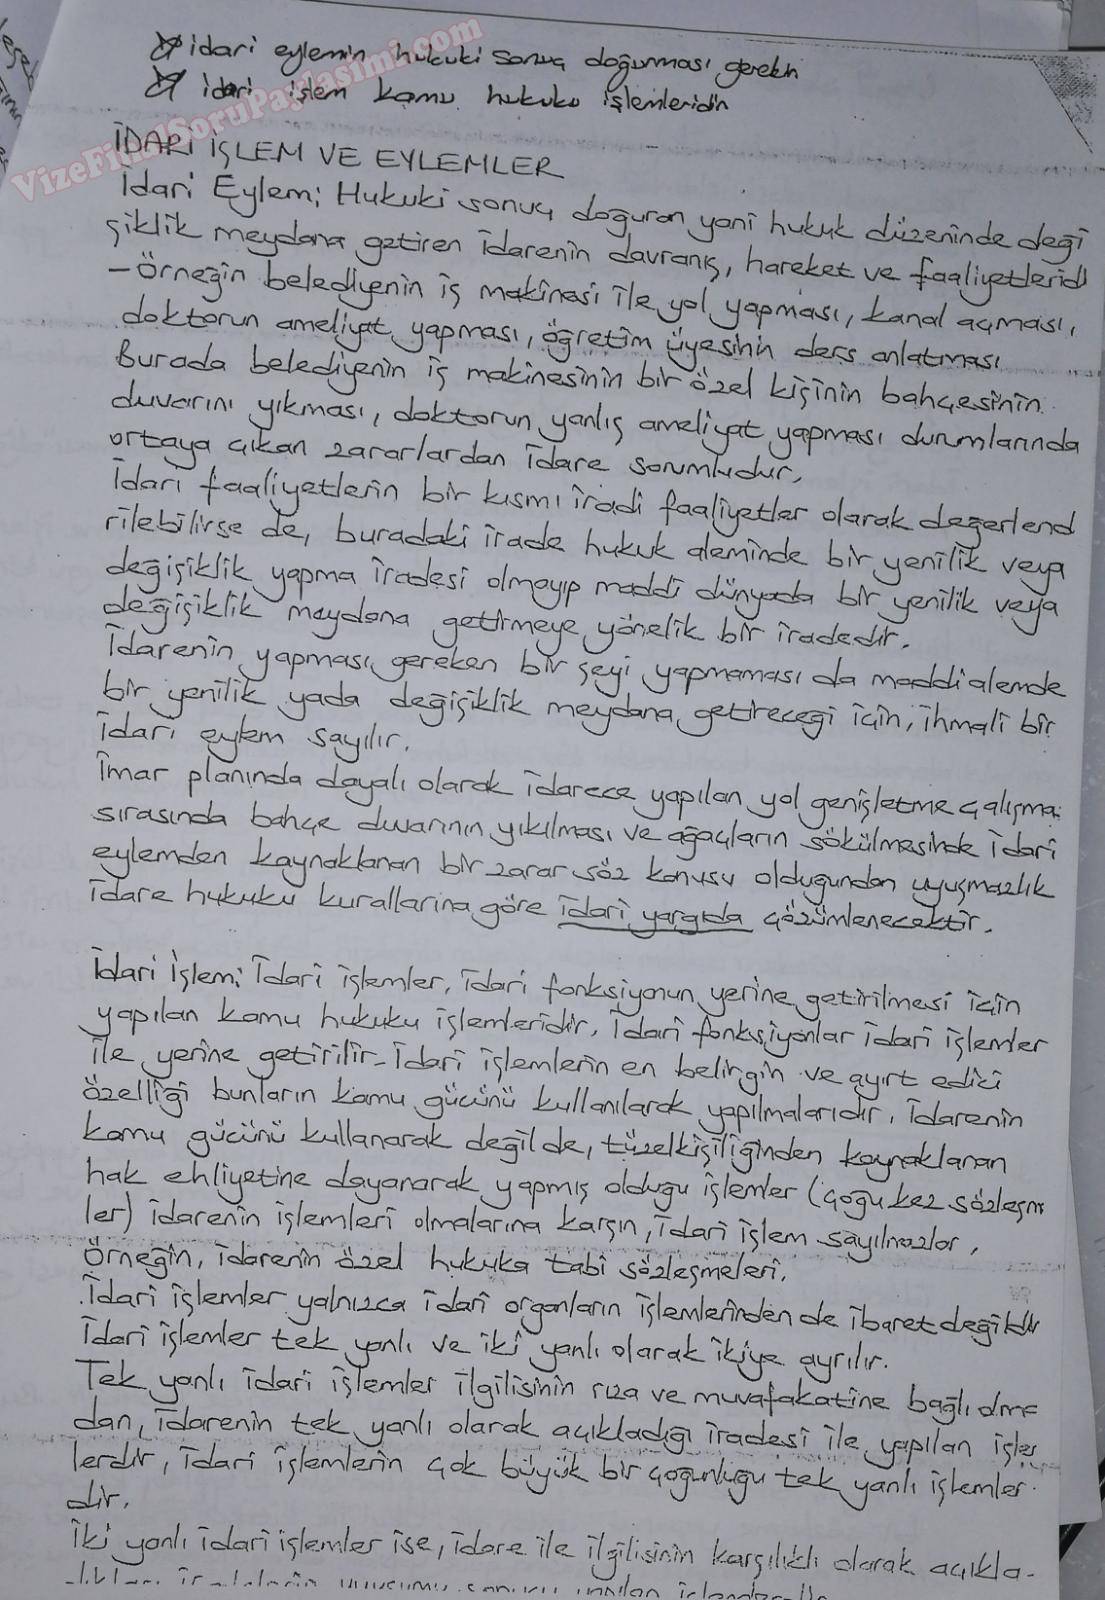 idari eylemin hukuki sonuç doğurması gerekir
idari işlem kamu hukuku işlemleridir
VizeFinalSoruPaylasimi.com
İDARİ İŞLEM VE EYLEMLER
İdari Eylem; Hukuki sonuç doğuran yani hukuk düzeninde deği
şiklik meydana getiren idarenin davranış, hareket ve faaliyetlerid
- Örneğin belediyenin iş makinesi ile yol yapması, kanal açması,
doktorun ameliyat yapması, öğretim üyesinin ders anlatması
Burada belediyenin iş makinesinin bir özel kişinin bahçesinin
duvarını yıkması, doktorun yanlış ameliyat yapması durumlarında
ortaya çıkan zararlardan idare sorumludur.
İdari faaliyetlerin bir kısmı iradi faaliyetler olarak değerlend
rilebilirse de, buradaki irade hukuk aleminde bir yenilik veya
değişiklik yapma iradesi olmayıp maddi dünyada bir yenilik veya
değişiklik meydana getirmeye yönelik bir iradedir.
İdarenin yapması gereken bir şeyi yapmaması da maddi alemde
bir yenilik yada değişiklik meydana getireceği için, ihmali bir
idari eylem sayılır.
İmar planında dayalı olarak idarece yapılan yol genişletme çalışma
sırasında bahçe duvarının yıkılması ve ağaçların sökülmesinde idari
eylemden kaynaklanan bir zarar söz konusu olduğundan uyuşmazlık
idare hukuku kurallarına göre idari yargıda çözümlenecektir.
İdari İşlem; İdari işlemler, idari fonksiyonun yerine getirilmesi için
yapılan kamu hukuku işlemleridir. İdari fonksiyonlar idari işlemler
ile yerine getirilir. İdari işlemlerin en belirgin ve ayırt edici
özelliği bunların kamu gücünü kullanılarak yapılmalarıdır. İdarenin
kamu gücünü kullanarak değil de, tüzelkişiliğinden kaynaklanan
hak ehliyetine dayanarak yapmış olduğu işlemler (çoğu kez sözleşm
ler) idarenin işlemleri olmalarına karşın, idari işlem sayılmazlar,
Örneğin, idarenin özel hukuka tabi sözleşmeleri.
İdari işlemler yalnızca idari organların işlemlerinden de ibaret değildir
İdari işlemler tek yanlı ve iki yanlı olarak ikiye ayrılır.
Tek yanlı idari işlemler ilgilisinin rıza ve muvafakatine bağlı olma
dan, idarenin tek yanlı olarak açıkladığı iradesi ile yapılan işle
lerdir, idari işlemlerin çok büyük bir çoğunluğu tek yanlı işlemler
dir.
İki yanlı idari işlemler ise, idare ile ilgilisinin karşılıklı olarak açıkla-